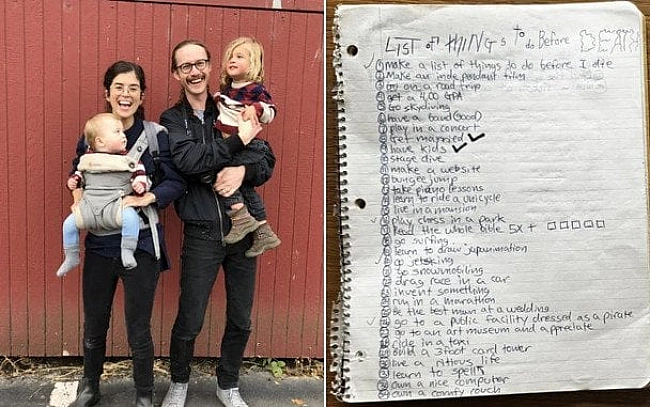 LIST of THINGs to do Before DEATH
make a list of things to do before I die
Make an independant film
go on a road trip
get a 4.00 GPA
Go skydiving
have a band (Good)
play in a concert
Get married
have kids
stage dive
make a website
bungee jump
take piano lessons
learn to ride a unicycle
live in a mansion
play chess in a park
Read the whole bible 5x +
go surfing
learn to draw japanimation
go jetskiing
go snowmobiling
drag race in a car
invent something
run in a marathon
Be the best man at a wedding
go to a public facility dressed as a pirate
go to an art museum and appreciate
ride in a taxi
build a 3 foot card tower
live a life
learn to spell
own a nice computer
own a comfy couch